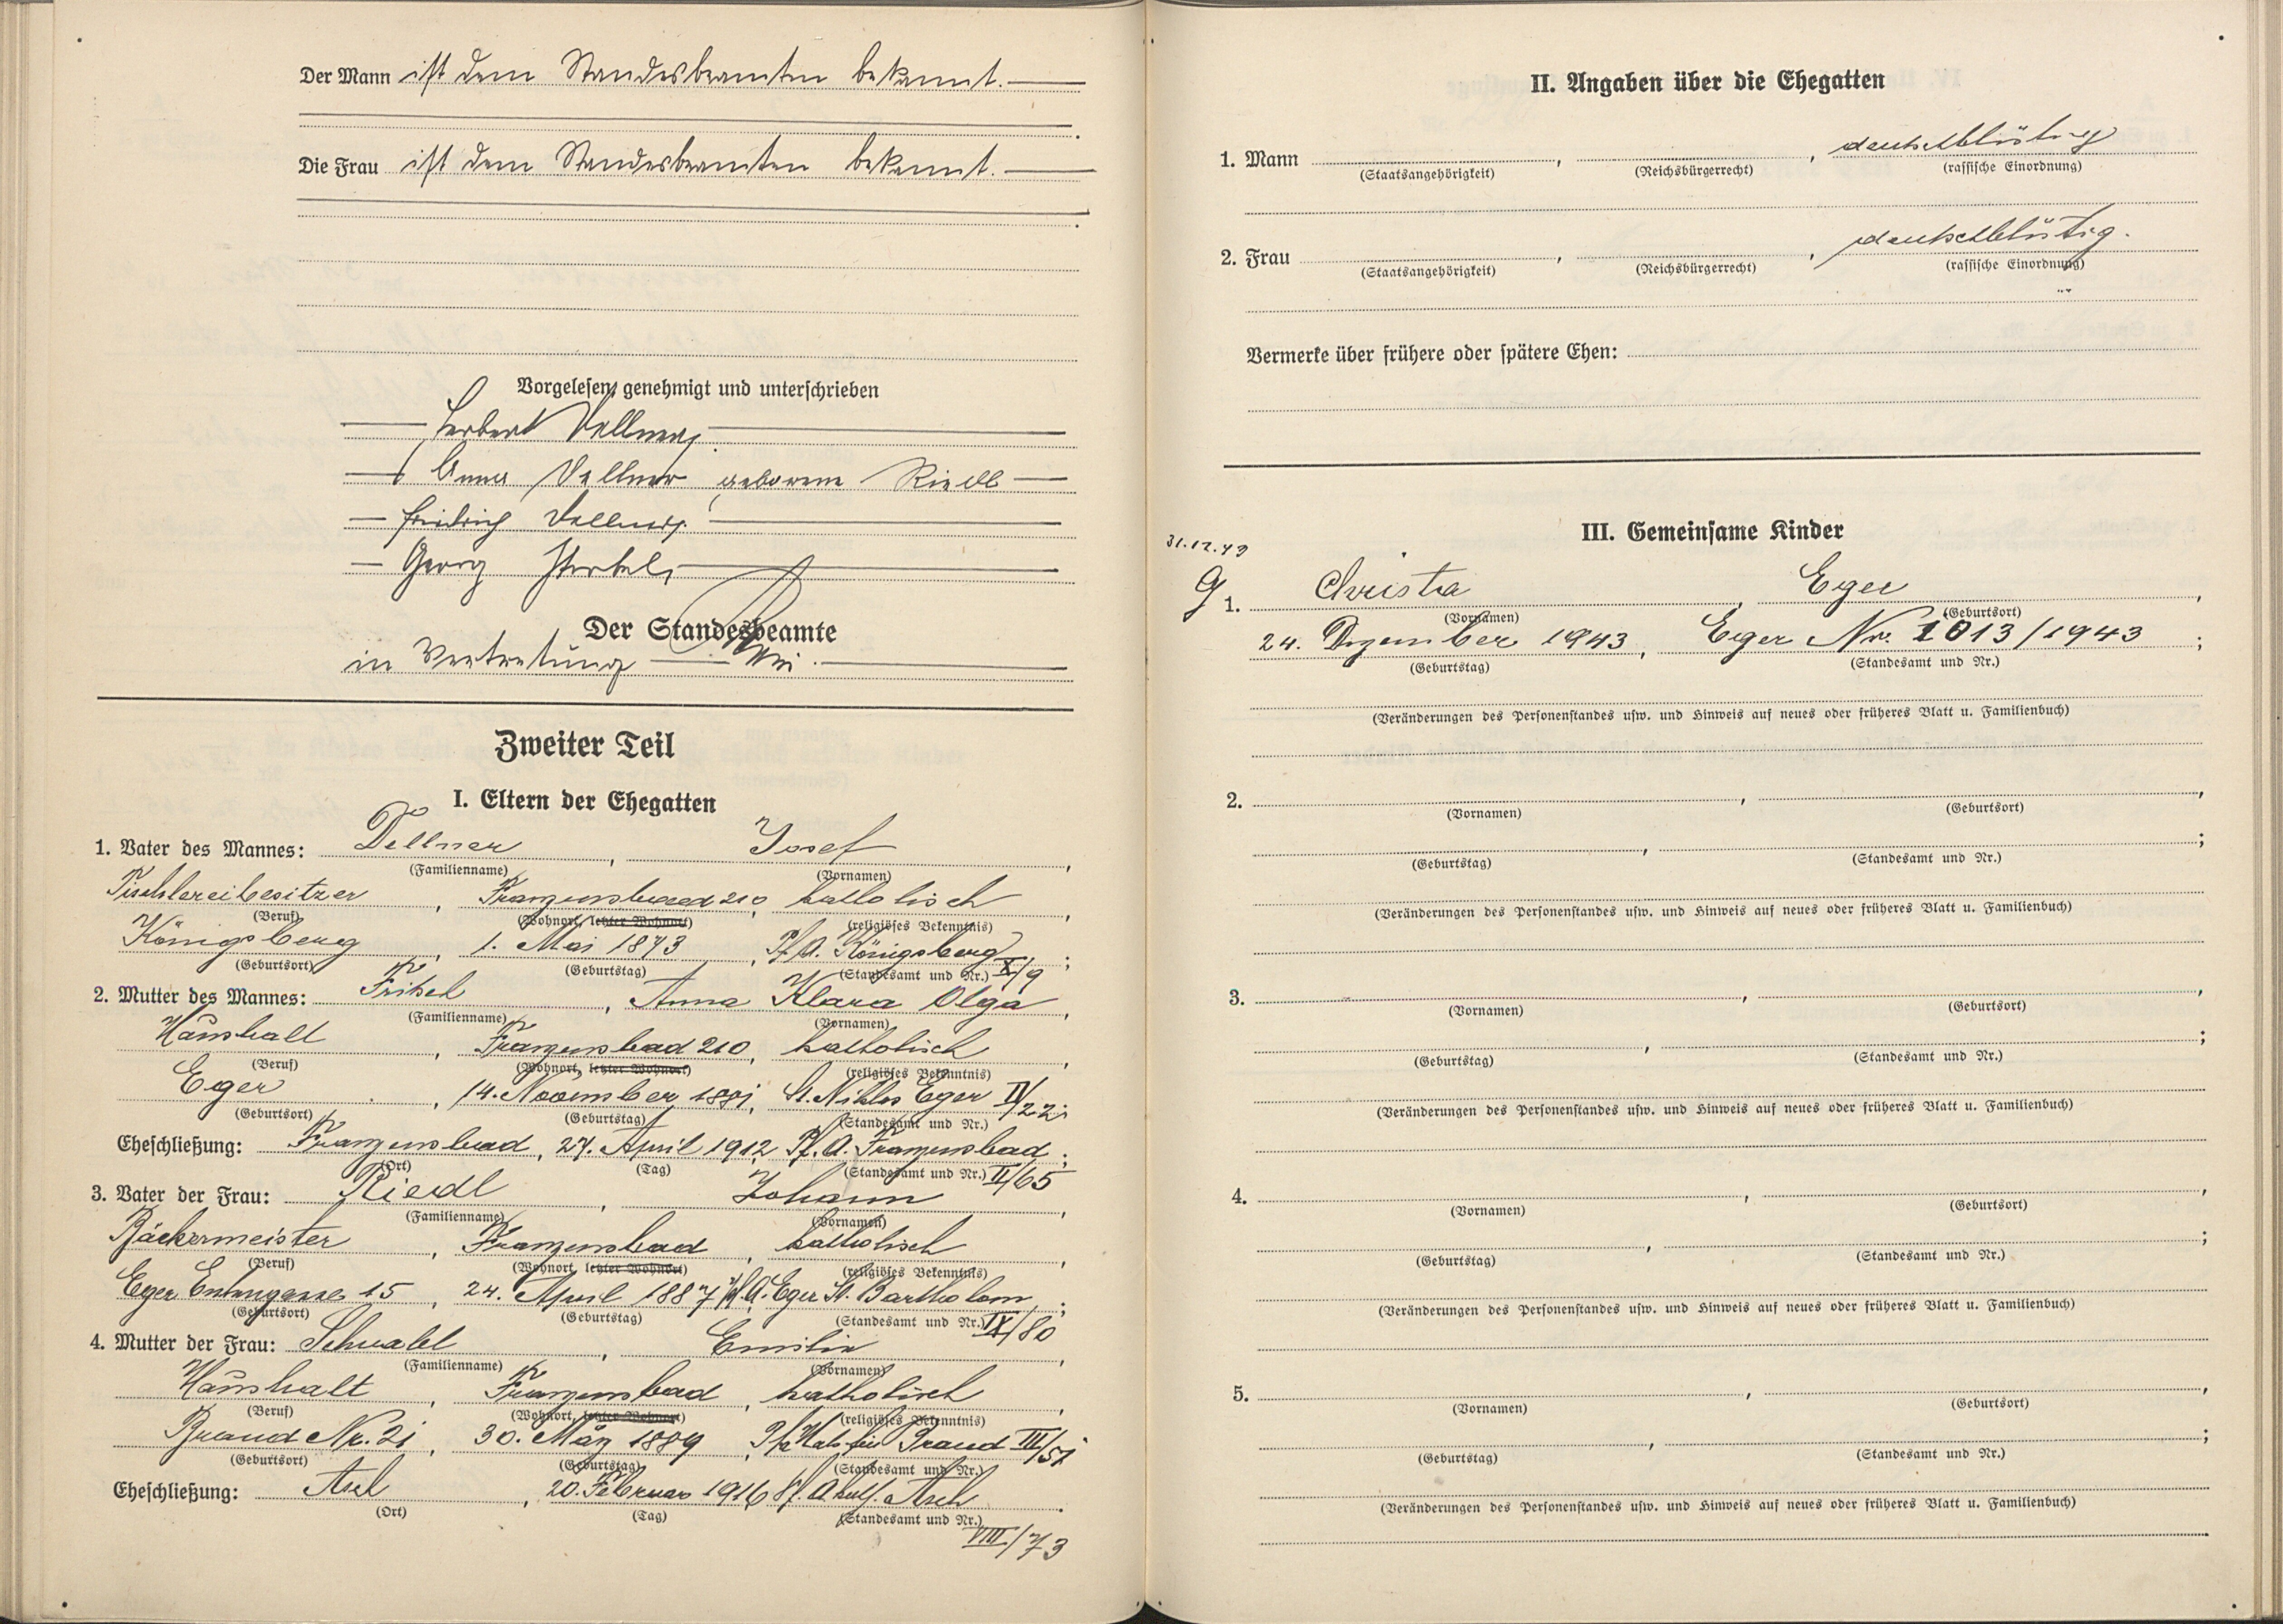 Der Mann ist dem Standesbeamten bekannt.
Die Frau ist dem Standesbeamten bekannt.
Vorgelesen, genehmigt und unterschrieben
Herbert Dellner
Anna Dellner geborene Riedl
Friedrich Dellner
Georg
Der Standesbeamte
in Vertretung
Zweiter Teil
I. Eltern der Ehegatten
1. Vater des Mannes: Dellner, Josef,
(Familienname) (Vornamen)
Tischlereibesitzer, Franzensbad 210, katholisch,
(Beruf) (Wohnort, letzter Wohnort) (religiöses Bekenntnis)
Königsberg, 1. Mai 1873, Pf.A. Königsberg X/9;
(Geburtsort) (Geburtstag) (Standesamt und Nr.)
2. Mutter des Mannes: Fritsch, Anna Klara Olga,
(Familienname) (Vornamen)
Haushalt, Franzensbad 210, katholisch,
(Beruf) (Wohnort, letzter Wohnort) (religiöses Bekenntnis)
Eger, 14. November 1881, St. Niklas Eger II/22;
(Geburtsort) (Geburtstag) (Standesamt und Nr.)
Eheschließung: Franzensbad, 27. April 1912, Pf.A. Franzensbad;
(Ort) (Tag) (Standesamt und Nr.) II/65
3. Vater der Frau: Riedl, Johann,
(Familienname) (Vornamen)
Bäckermeister, Franzensbad, katholisch,
(Beruf) (Wohnort, letzter Wohnort) (religiöses Bekenntnis)
Eger 15, 24. April 1887, Pf.A. Eger St. Bartholom;
(Geburtsort) (Geburtstag) (Standesamt und Nr.) IX/80
4. Mutter der Frau: Schwabl, Emilie,
(Familienname) (Vornamen)
Haushalt, Franzensbad, katholisch,
(Beruf) (Wohnort, letzter Wohnort) (religiöses Bekenntnis)
Brand Nr. 21, 30. März 1889, Brand III/51
(Geburtsort) (Geburtstag) (Standesamt und Nr.)
Eheschließung: Asch, 20. Februar 1916 Pf.A. kath. Asch.
(Ort) (Tag) (Standesamt und Nr.)
VIII/73
II. Angaben über die Ehegatten
1. Mann , , deutschblütig
(Staatsangehörigkeit) (Reichsbürgerrecht) (rassische Einordnung)
2. Frau , , deutschblütig.
(Staatsangehörigkeit) (Reichsbürgerrecht) (rassische Einordnung)
Vermerke über frühere oder spätere Ehen:
III. Gemeinsame Kinder
31.12.49
G 1. Christa, Eger,
(Vornamen) (Geburtsort)
24. Dezember 1943, Eger Nr. 1013/1943;
(Geburtstag) (Standesamt und Nr.)
(Veränderungen des Personenstandes usw. und Hinweis auf neues oder früheres Blatt u. Familienbuch)
2. , ,
(Vornamen) (Geburtsort)
, ;
(Geburtstag) (Standesamt und Nr.)
(Veränderungen des Personenstandes usw. und Hinweis auf neues oder früheres Blatt u. Familienbuch)
3. , ,
(Vornamen) (Geburtsort)
, ;
(Geburtstag) (Standesamt und Nr.)
(Veränderungen des Personenstandes usw. und Hinweis auf neues oder früheres Blatt u. Familienbuch)
4. , ,
(Vornamen) (Geburtsort)
, ;
(Geburtstag) (Standesamt und Nr.)
(Veränderungen des Personenstandes usw. und Hinweis auf neues oder früheres Blatt u. Familienbuch)
5. , ,
(Vornamen) (Geburtsort)
, ;
(Geburtstag) (Standesamt und Nr.)
(Veränderungen des Personenstandes usw. und Hinweis auf neues oder früheres Blatt u. Familienbuch)